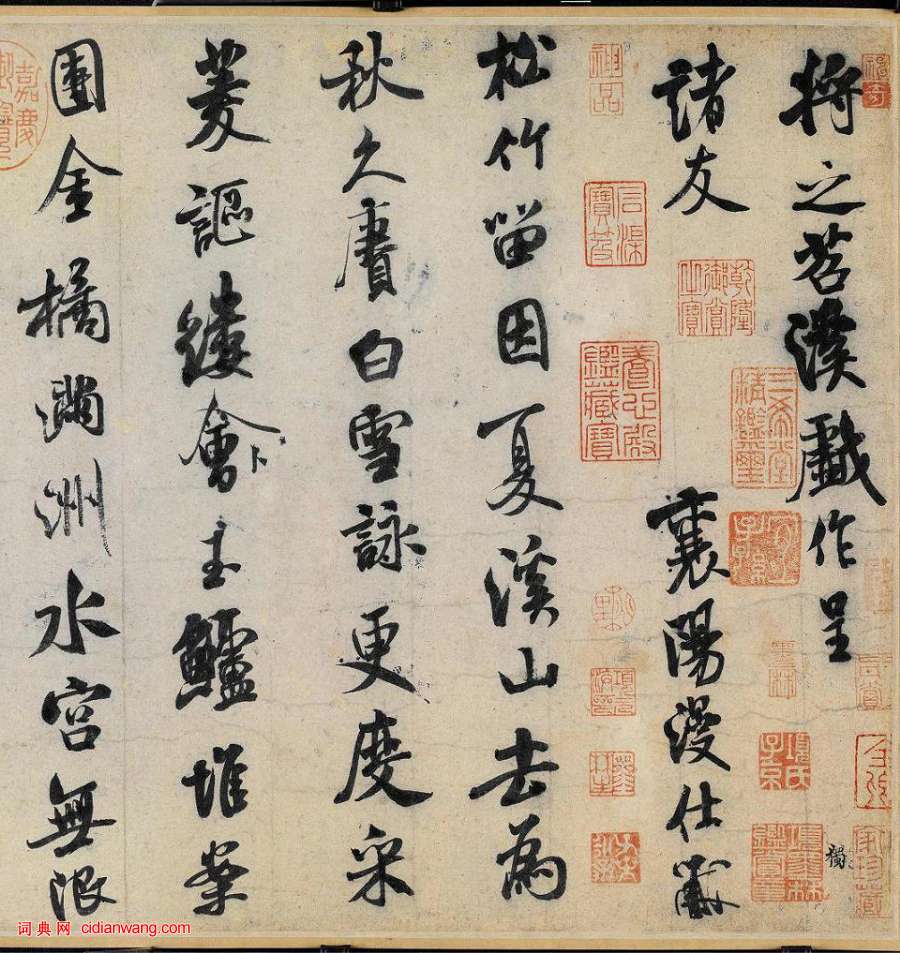 將之苕溪戲作呈
諸友 襄陽漫仕黻
松竹留因夏溪山去為
秋久賡白雪詠更度采
菱謳縷會玉鱸堆案
團金橘滿洲水宮無限
神品
石渠寶笈
乾隆御賞之寶
養心殿鑑藏寶
三希堂精鑑璽
宜子孫
項氏子京
項墨林鑑賞章
词典网 cidianwang.com